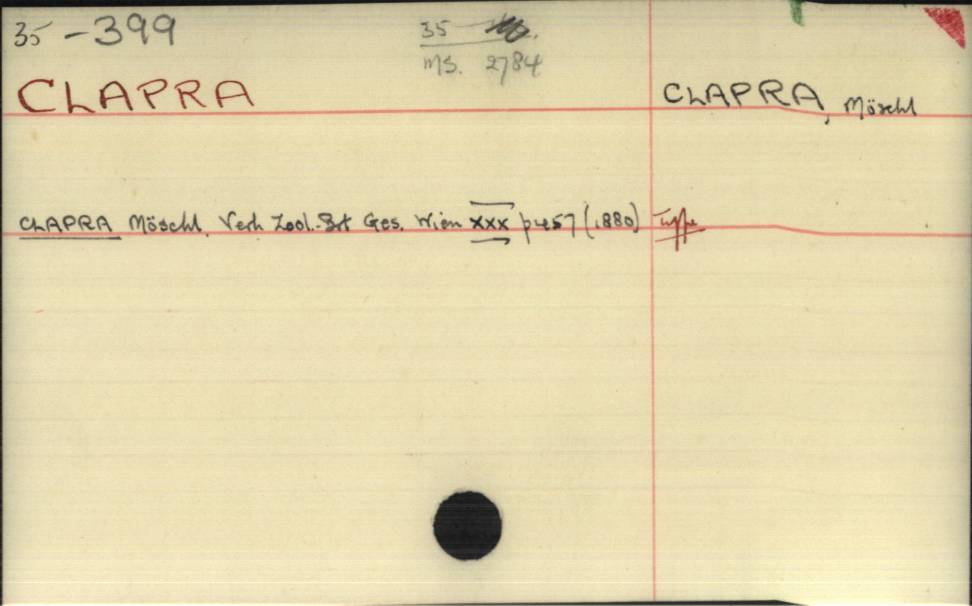 35-399
35
MS. 2784
CLAPRA
CLAPRA, Möschl
CLAPRA Möschl. Verh Zool.-Bot Ges. Wien XXX p457 (1880) Type